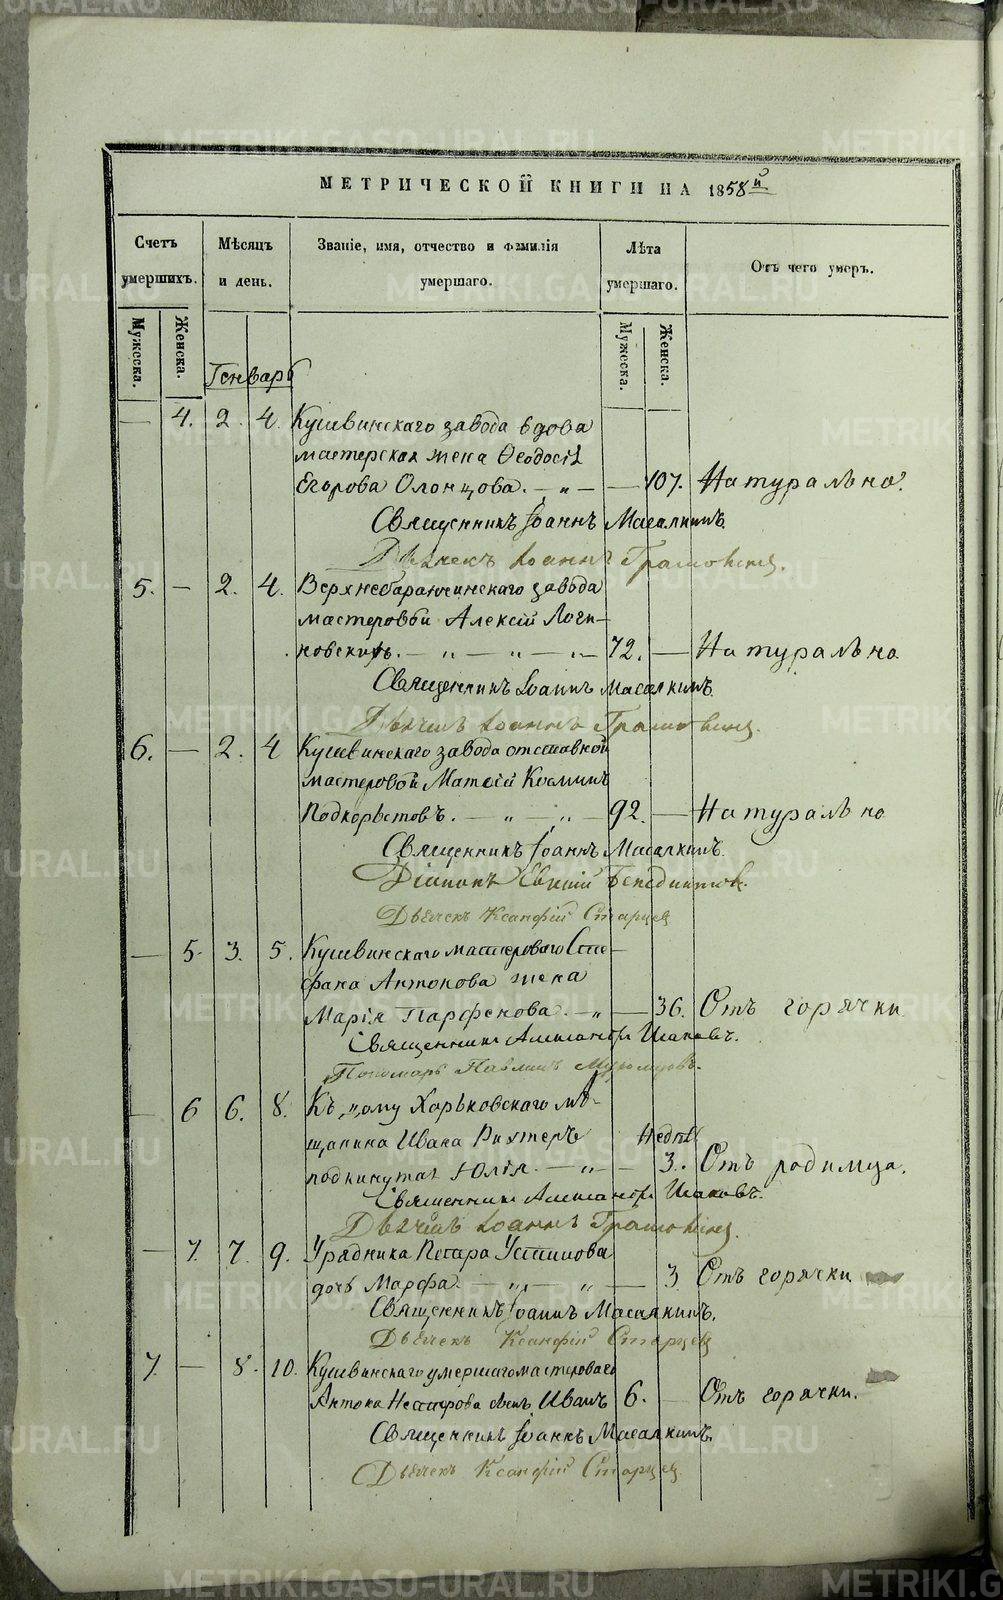 МЕТРИЧЕСКОЙ КНИГИ НА 1858й
Счетъ умершихъ.
Мѣсяцъ и день.
Званіе, имя, отчество и фамилія умершаго.
Лѣта умершаго.
Отъ чего умеръ.
Мужеска. Женска. Мужеска. Женска.
Генварь
— 4. 2. 4. Кушвинскаго завода вдова
мастерская жена Ѳеодосія
Егорова Олонцова. — „ — — 107. Натурально.
Священникъ Іоаннъ Масалкинъ.
Дьячекъ Іоаннъ
5. — 2. 4. Верхнебаранчинскаго завода
мастеровой Алексій Логи-
новскихъ. — „ — „ — „ — 72. — Натурально
Священникъ Іоаннъ Масалкинъ.
Дьячекъ Іоаннъ
6. — 2. 4 Кушвинскаго завода отставной
мастеровой Матѳій Косминъ
Подкорытовъ. — „ — „ — 92. — Натурально
Священникъ Іоаннъ Масалкинъ.
Діаконъ
Дьячекъ Ксанфій Старцев
— 5. 3. 5. Кушвинскаго мастероваго Сте-
фана Антонова жена
Марія Парфенова. — „ — 36. Отъ горячки
Священникъ Александръ
Пономарь Павлинъ
— 6 6. 8. Къ дому Харьковскаго мѣ-
щанина Ивана Рихтеръ Недѣль
подкинутая Юлія. — „ — 3. Отъ родимца.
Священникъ Александръ
Дьячекъ Іоаннъ
— 7. 7. 9. Урядника Петра Устинова
дочь Марфа. — „ — „ — 3 Отъ горячки
Священникъ Іоаннъ Масалкинъ.
Дьячекъ Ксанфій Старцев
7. — 8. 10. Кушвинскаго умершаго мастероваго
Антона Нестерова сынъ Иванъ 6. — Отъ горячки.
Священникъ Іоаннъ Масалкинъ.
Дьячекъ Ксанфій Старцев
METRIKI.GASO-URAL.RU